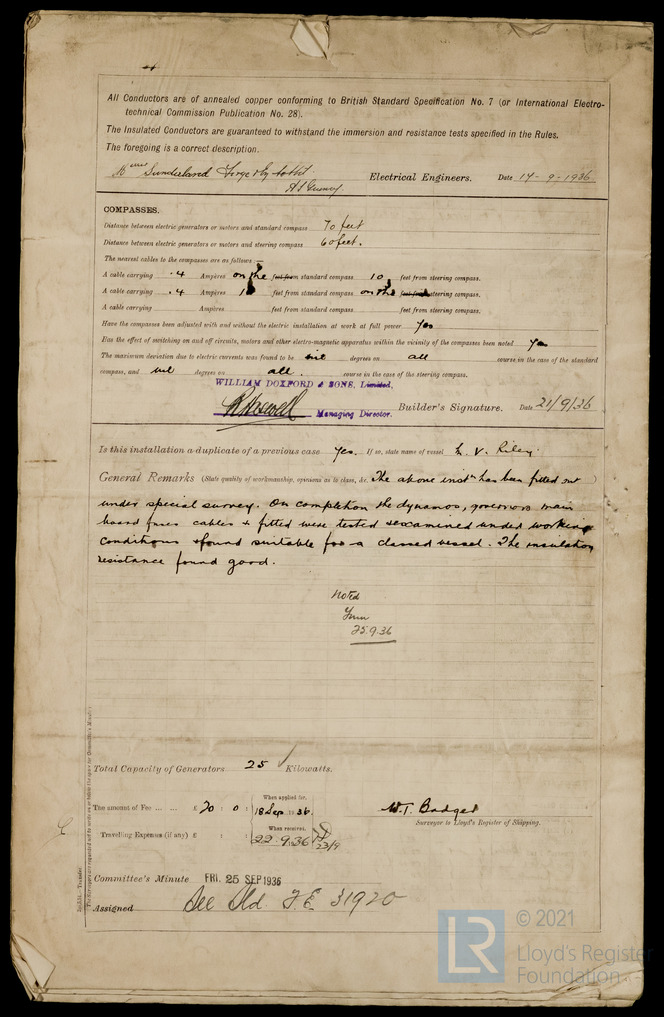 All Conductors are of annealed copper conforming to British Standard Specification No. 7 (or International Electro-
technical Commission Publication No. 28).
The Insulated Conductors are guaranteed to withstand the immersion and resistance tests specified in the Rules.
The foregoing is a correct description.
Sunderland Forge Electrical Engineers. Date 14-9-1936
COMPASSES.
Distance between electric generators or motors and standard compass 70 feet
Distance between electric generators or motors and steering compass 60 feet.
The nearest cables to the compasses are as follows:—
A cable carrying .4 Ampères on the feet from standard compass 10 feet from steering compass.
A cable carrying .4 Ampères feet from standard compass on the feet from steering compass.
A cable carrying Ampères feet from standard compass feet from steering compass.
Have the compasses been adjusted with and without the electric installation at work at full power Yes
Has the effect of switching on and off circuits, motors and other electro-magnetic apparatus within the vicinity of the compasses been noted Yes
The maximum deviation due to electric currents was found to be nil degrees on all course in the case of the standard
compass, and nil degrees on all. course in the case of the steering compass.
WILLIAM DOXFORD & SONS, Limited,
Managing Director. Builder's Signature. Date 21/9/36
Is this installation a duplicate of a previous case Yes. If so, state name of vessel M. V. Riley.
General Remarks (State quality of workmanship, opinions as to class, &c. The above instn has been fitted out )
under special survey. On completion the dynamos, governors main
board fuses cables & fitted were tested & examined under working
conditions & found suitable for a classed vessel. The insulation
resistance found good.
Noted
25.9.36
Total Capacity of Generators 25 Kilowatts.
The amount of Fee ... ... £ 20 : 0 : When applied for, 18 Sep. 1936.
Travelling Expenses (if any) £ : : When received, 22.9.36 23/9
W.T. Badger
Surveyor to Lloyd's Register of Shipping.
Committee's Minute FRI. 25 SEP 1936
Assigned See Sld F.E. 31920
LR
© 2021
Lloyd's Register
Foundation